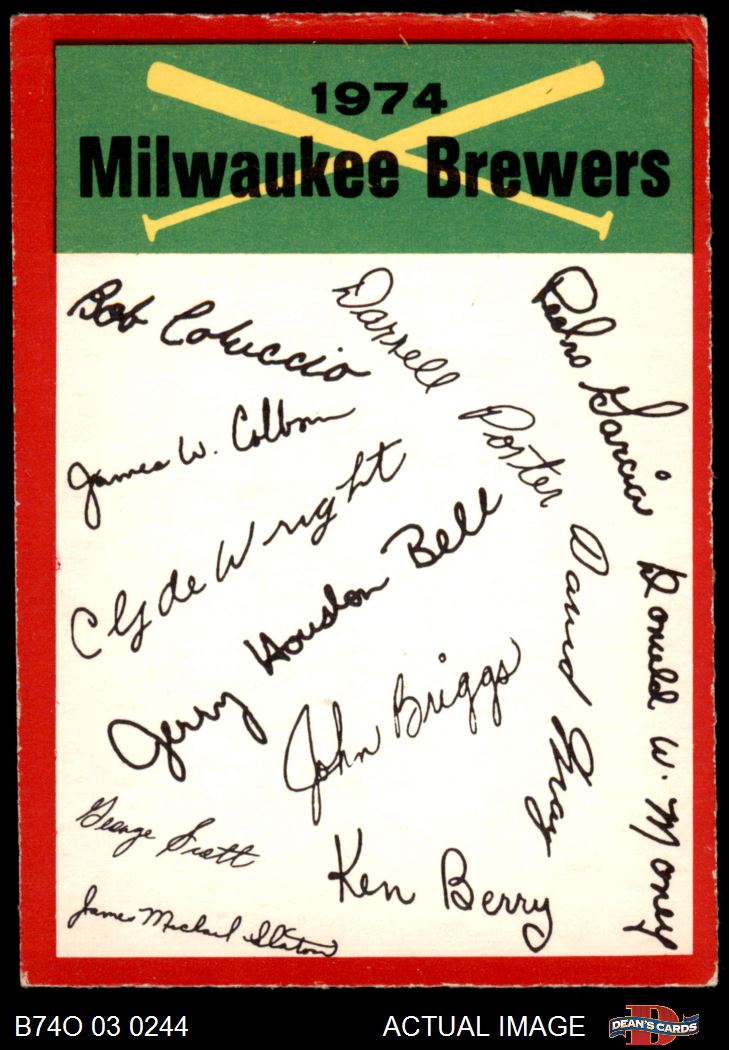 1974
Milwaukee Brewers
Bob Coluccio
Darrell Porter
Pedro Garcia
James W. Colborn
Clyde Wright
Jerry Houston Bell
David May
Donald W. Money
John Briggs
George Scott
Ken Berry
James Michael Slaton
B74O 03 0244
ACTUAL IMAGE
DEAN'S CARDS